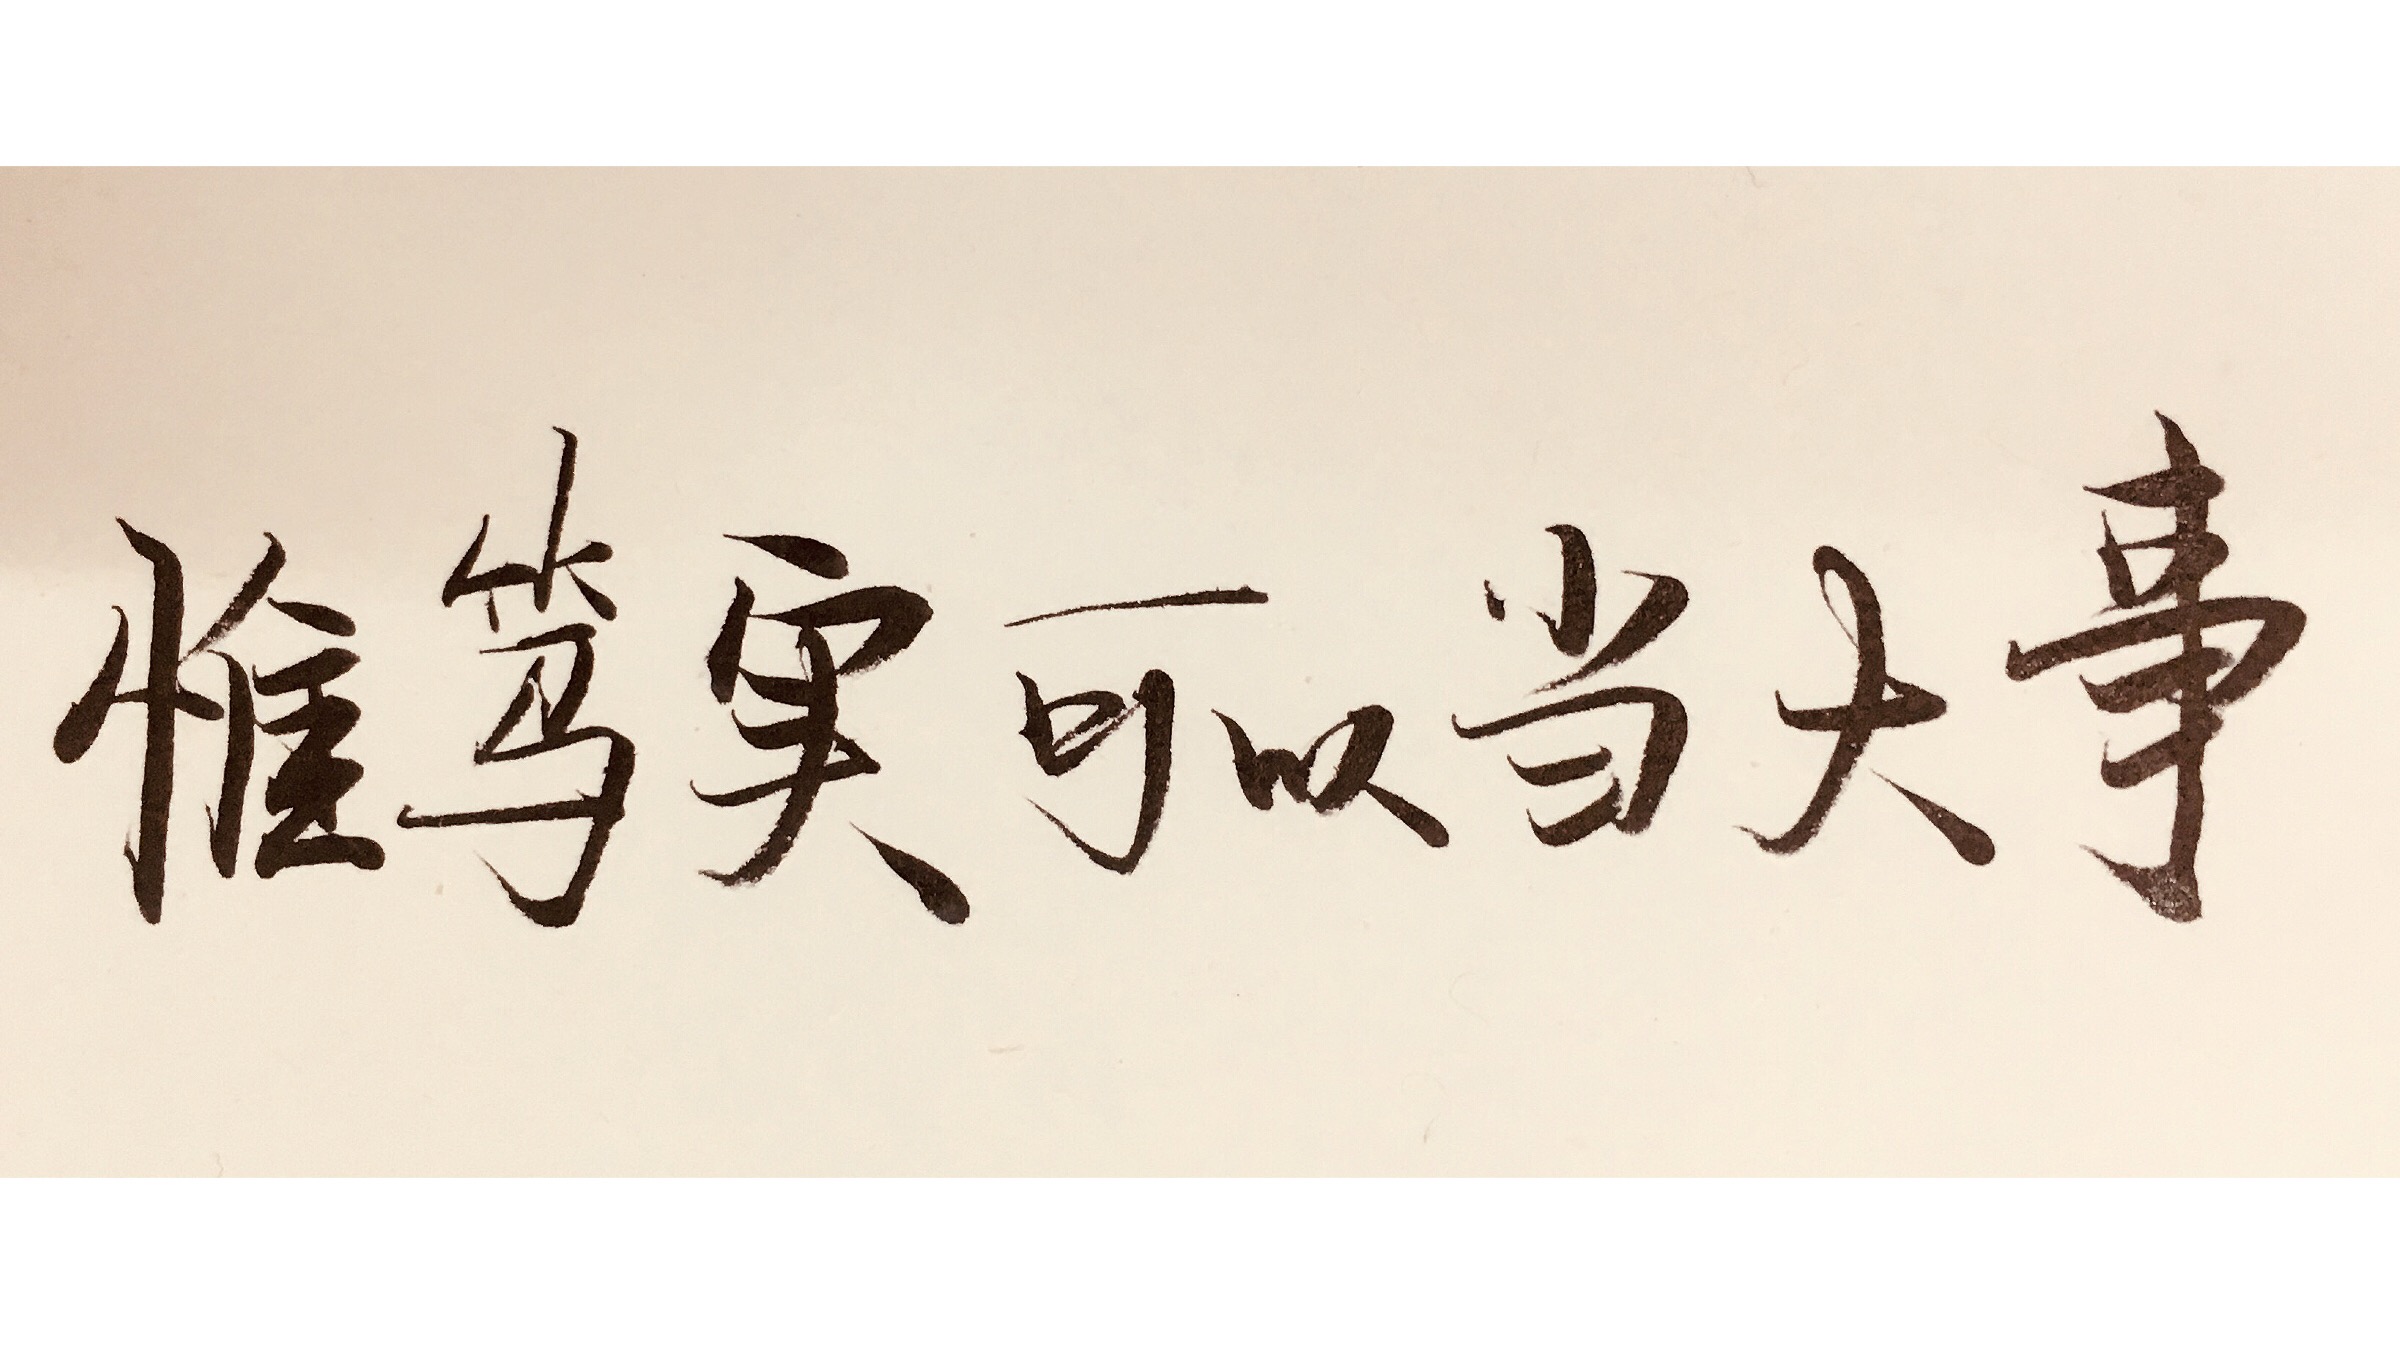 惟笃实可以当大事